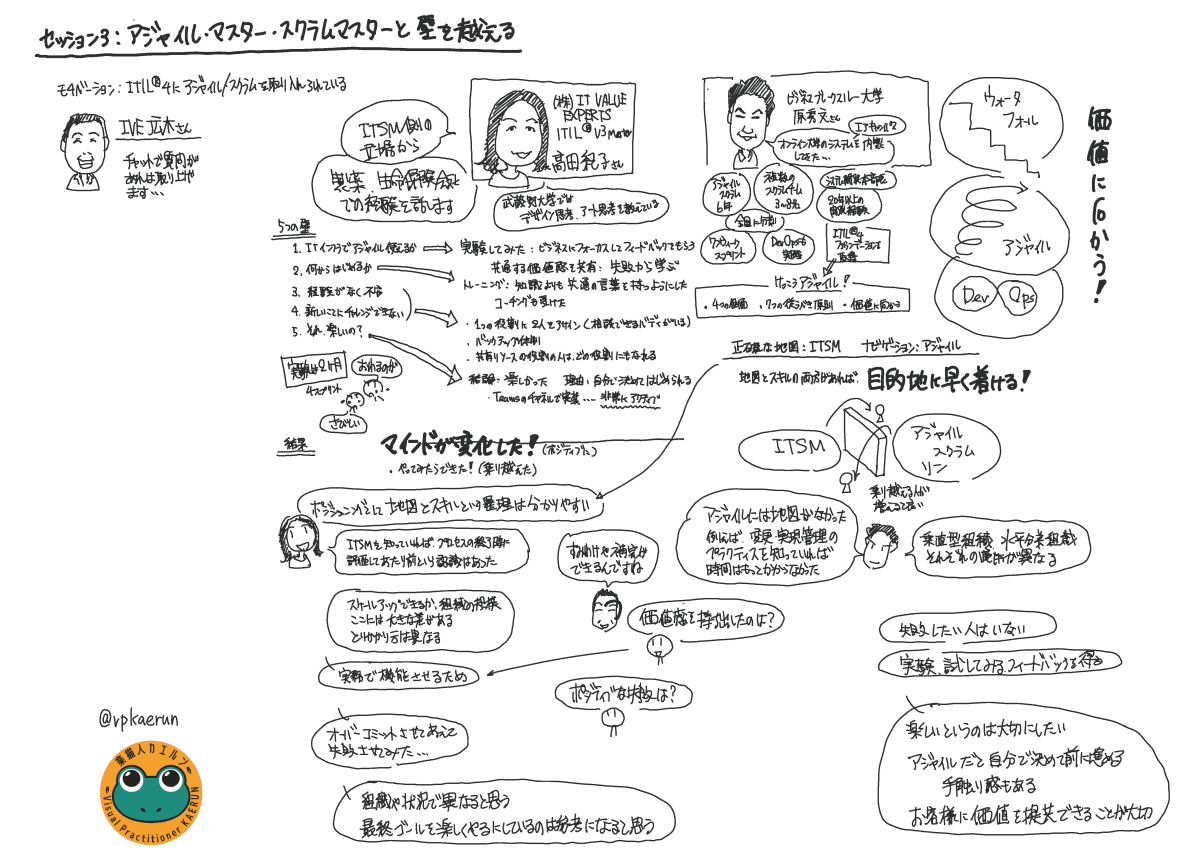 セッション3：アジャイル・マスター・スクラムマスターと壁を越える
モチベーション：ITIL®4にアジャイル/スクラムを取り入れられている
IVE 立木さん
チャットで質問が
あれば取り上げ
ます…
ITSM側の
立場から
製薬、生命保険会社
での経験を話します
(株)IT VALUE
EXPERTS
ITIL® V3 Master
高田紀子さん
武蔵野大学では
デザイン思考、アート思考を教えている
ビジネスブレークスルー大学
原秀文さん
オンライン大学のシステムを内製
してきた…
アジャイル
スクラム
6年
複数の
スクラムチーム
3〜8名
20年以上の
開発経験
全国に分散
ワンウィーク
スプリント
DevOpsも
実践
ITIL®4
ファンデーションを
取得
けっこうアジャイル！
・4つの価値 ・7つの従うべき原則 ・価値に向かう
ウォータ
フォール
アジャイル
Dev Ops
価値に向かう！
5つの壁
1. ITインフラでアジャイル使えるか
2. 何からはじめるか
3. 経験がなく不安
4. 新しいことにチャレンジできない
5. それ、楽しいの？
実験してみた：ビジネスにフォーカスしてフィードバックをもらう
共通する価値感を共有：失敗から学ぶ
トレーニング：知識よりも共通の言葉を持つようにした
コーチングも受けた
・1つの役割に2人をアサイン(相談できるバディがいる)
・バックアップの体制
・共有リソースの役割の人は、どの役割にもなれる
結論：楽しかった 理由：自分で決めてはじめられる
・Teamsのチャネルで実装…非常にアクティブ
実験は2ヶ月
4スプリント
おわるのが
さびしい
結果
マインドが変化した！(ポジティブに)
・やってみたらできた！(乗り越えた)
正確な地図：ITSM ナビゲーション：アジャイル
地図とスキルの両方があれば
目的地に早く着ける！
ITSM
アジャイル
スクラム
リーン
乗り越える人が
増えるとよい
ポジショニングとして地図とスキルという整理は分かりやすい
ITSMを知っていれば、プロセスの終了時に
評価してあたり前という認識はあった
すみわけや補完が
できるんですね
アジャイルには地図がなかった
例えば、変更実現管理の
プラクティスを知っていれば
時間はもっとかからなかった
垂直型組織、水平分業組織
それぞれの適用が異なる
スケールアップできるか、組織の規模
ここには大きな差がある
とりかかり方は異なる
価値感を持ち出したのは？
実務で機能させるため
ポジティブな失敗は？
オーバーコミットさせてあえて
失敗させてみた…
組織や状況で異なると思う
最終ゴールを楽しくやるにしているのは参考になると思う
失敗したい人はいない
実験、試してみる、フィードバックを得る
楽しいというのは大切にしたい
アジャイルだと自分で決めて前に進める
手触り感もある
お客様に価値を提供できることが大切
@vpkaerun
似描人カエルン
Visual Practitioner KAERUN